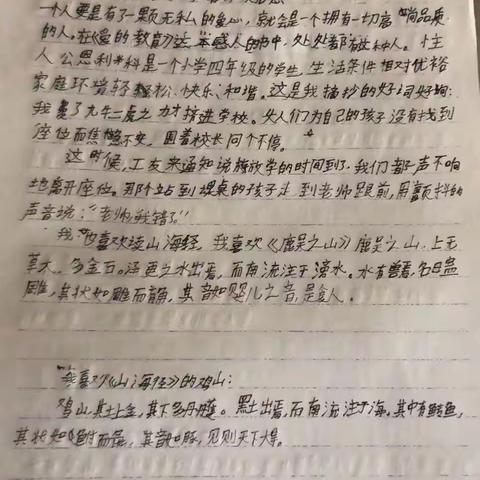 一个人要是有了一颗无私的爱心，就会是一个拥有一切高尚品质
的人。在《爱的教育》这本感人的书中，处处都有这种人。主
人公恩利*科是一个小学四年级的学生，生活条件相对优裕
家庭环境轻松、快乐、和谐。这是我摘抄的好词好句：
我费了九牛二虎之力才挤进学校。大人们为自己的孩子没有找到
座位而焦躁不安，围着校长问个不停。
这时候，工友来通知说放学的时间到了。我们都一声不响
地离开座位。那个站到课桌的孩子走到老师跟前，用颤抖的
声音说：“老师，我错了”
我也喜欢读山海经，我喜欢《鹿吴之山》鹿吴之山，上无
草木，多金石。泽更之水出焉，而南流注于滂水。水有兽焉，名曰蛊
雕，其状如雕而有角，其音如婴儿之音，是食人。
我喜欢《山海经》的鸡山：
鸡山，其上金，其下多丹雘。黑水出焉，而南流注于海。其中有鱄鱼，
其状如鲋而彘毛，其音如豚，见则天下大旱。